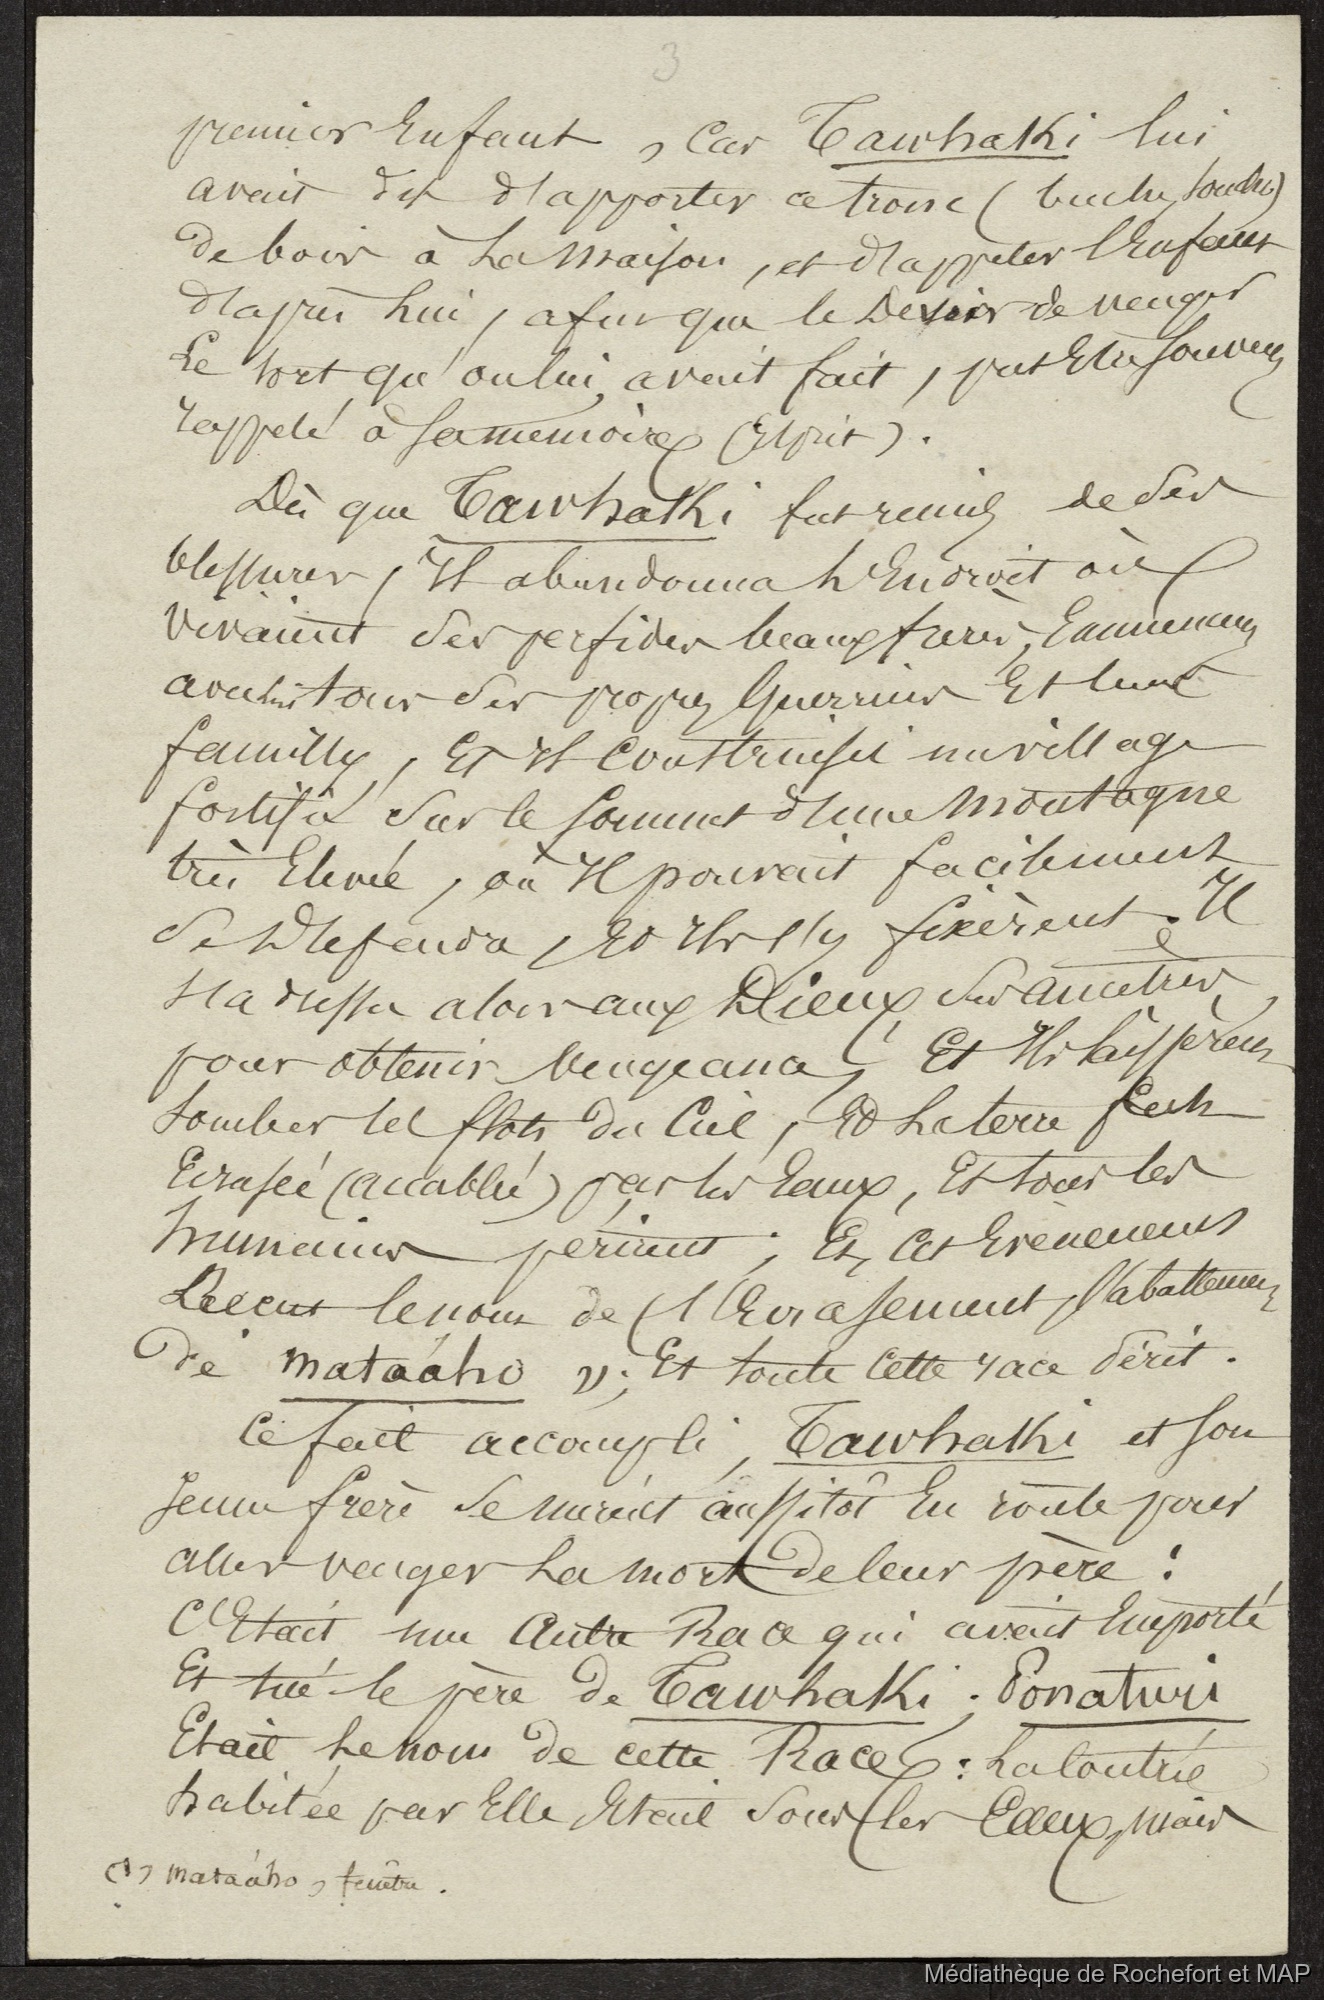 3
premier Enfant, Car Tawhaki lui
avait dit d'apporter ce tronc (buche, souche)
de bois à La Maison, et d'appeler l'Enfant
d'après lui, afin que le Désir de venger
Le sort qu'on lui avait fait, put Etre souvent
rappelé à sa mémoire (Esprit).
Dès que Tawhaki fut remis de ses
blessures, Il abandonna L'Endroit où
vivaient ses perfides beaux frères, Emmenant
avec lui tous ses propres Guerriers Et leurs
familles, Et Il construisit un village
fortifié sur le sommet d'une Montagne
très Elevée, où Il pouvait facilement
se Défendre, Et Ils s'y fixèrent. Il
s'adressa alors aux Dieux ses ancêtres,
pour obtenir Vengeance, Et Ils laissèrent
tomber les flots du Ciel, Et La terre fut
Ecrasée (accablée) par les Eaux, Et tous les
humains périrent; Et, Cet Evènement
Reçut le nom de (l'Ecrasement, l'abattement
de mataáho 1); Et toute cette race périt.
Ce fait accompli, Tawhaki et son
jeune frère se mirent aussitôt En route pour
aller venger La mort de leur père:
C'Etait une Autre Race qui avait Emporté
Et tué le père de Tawhaki; Ponaturi
Etait Le nom de cette Race: La Contrée
habitée par Elle Etait sous les Eaux, mais
(1) mataáho, fenêtre.
Médiathèque de Rochefort et MAP